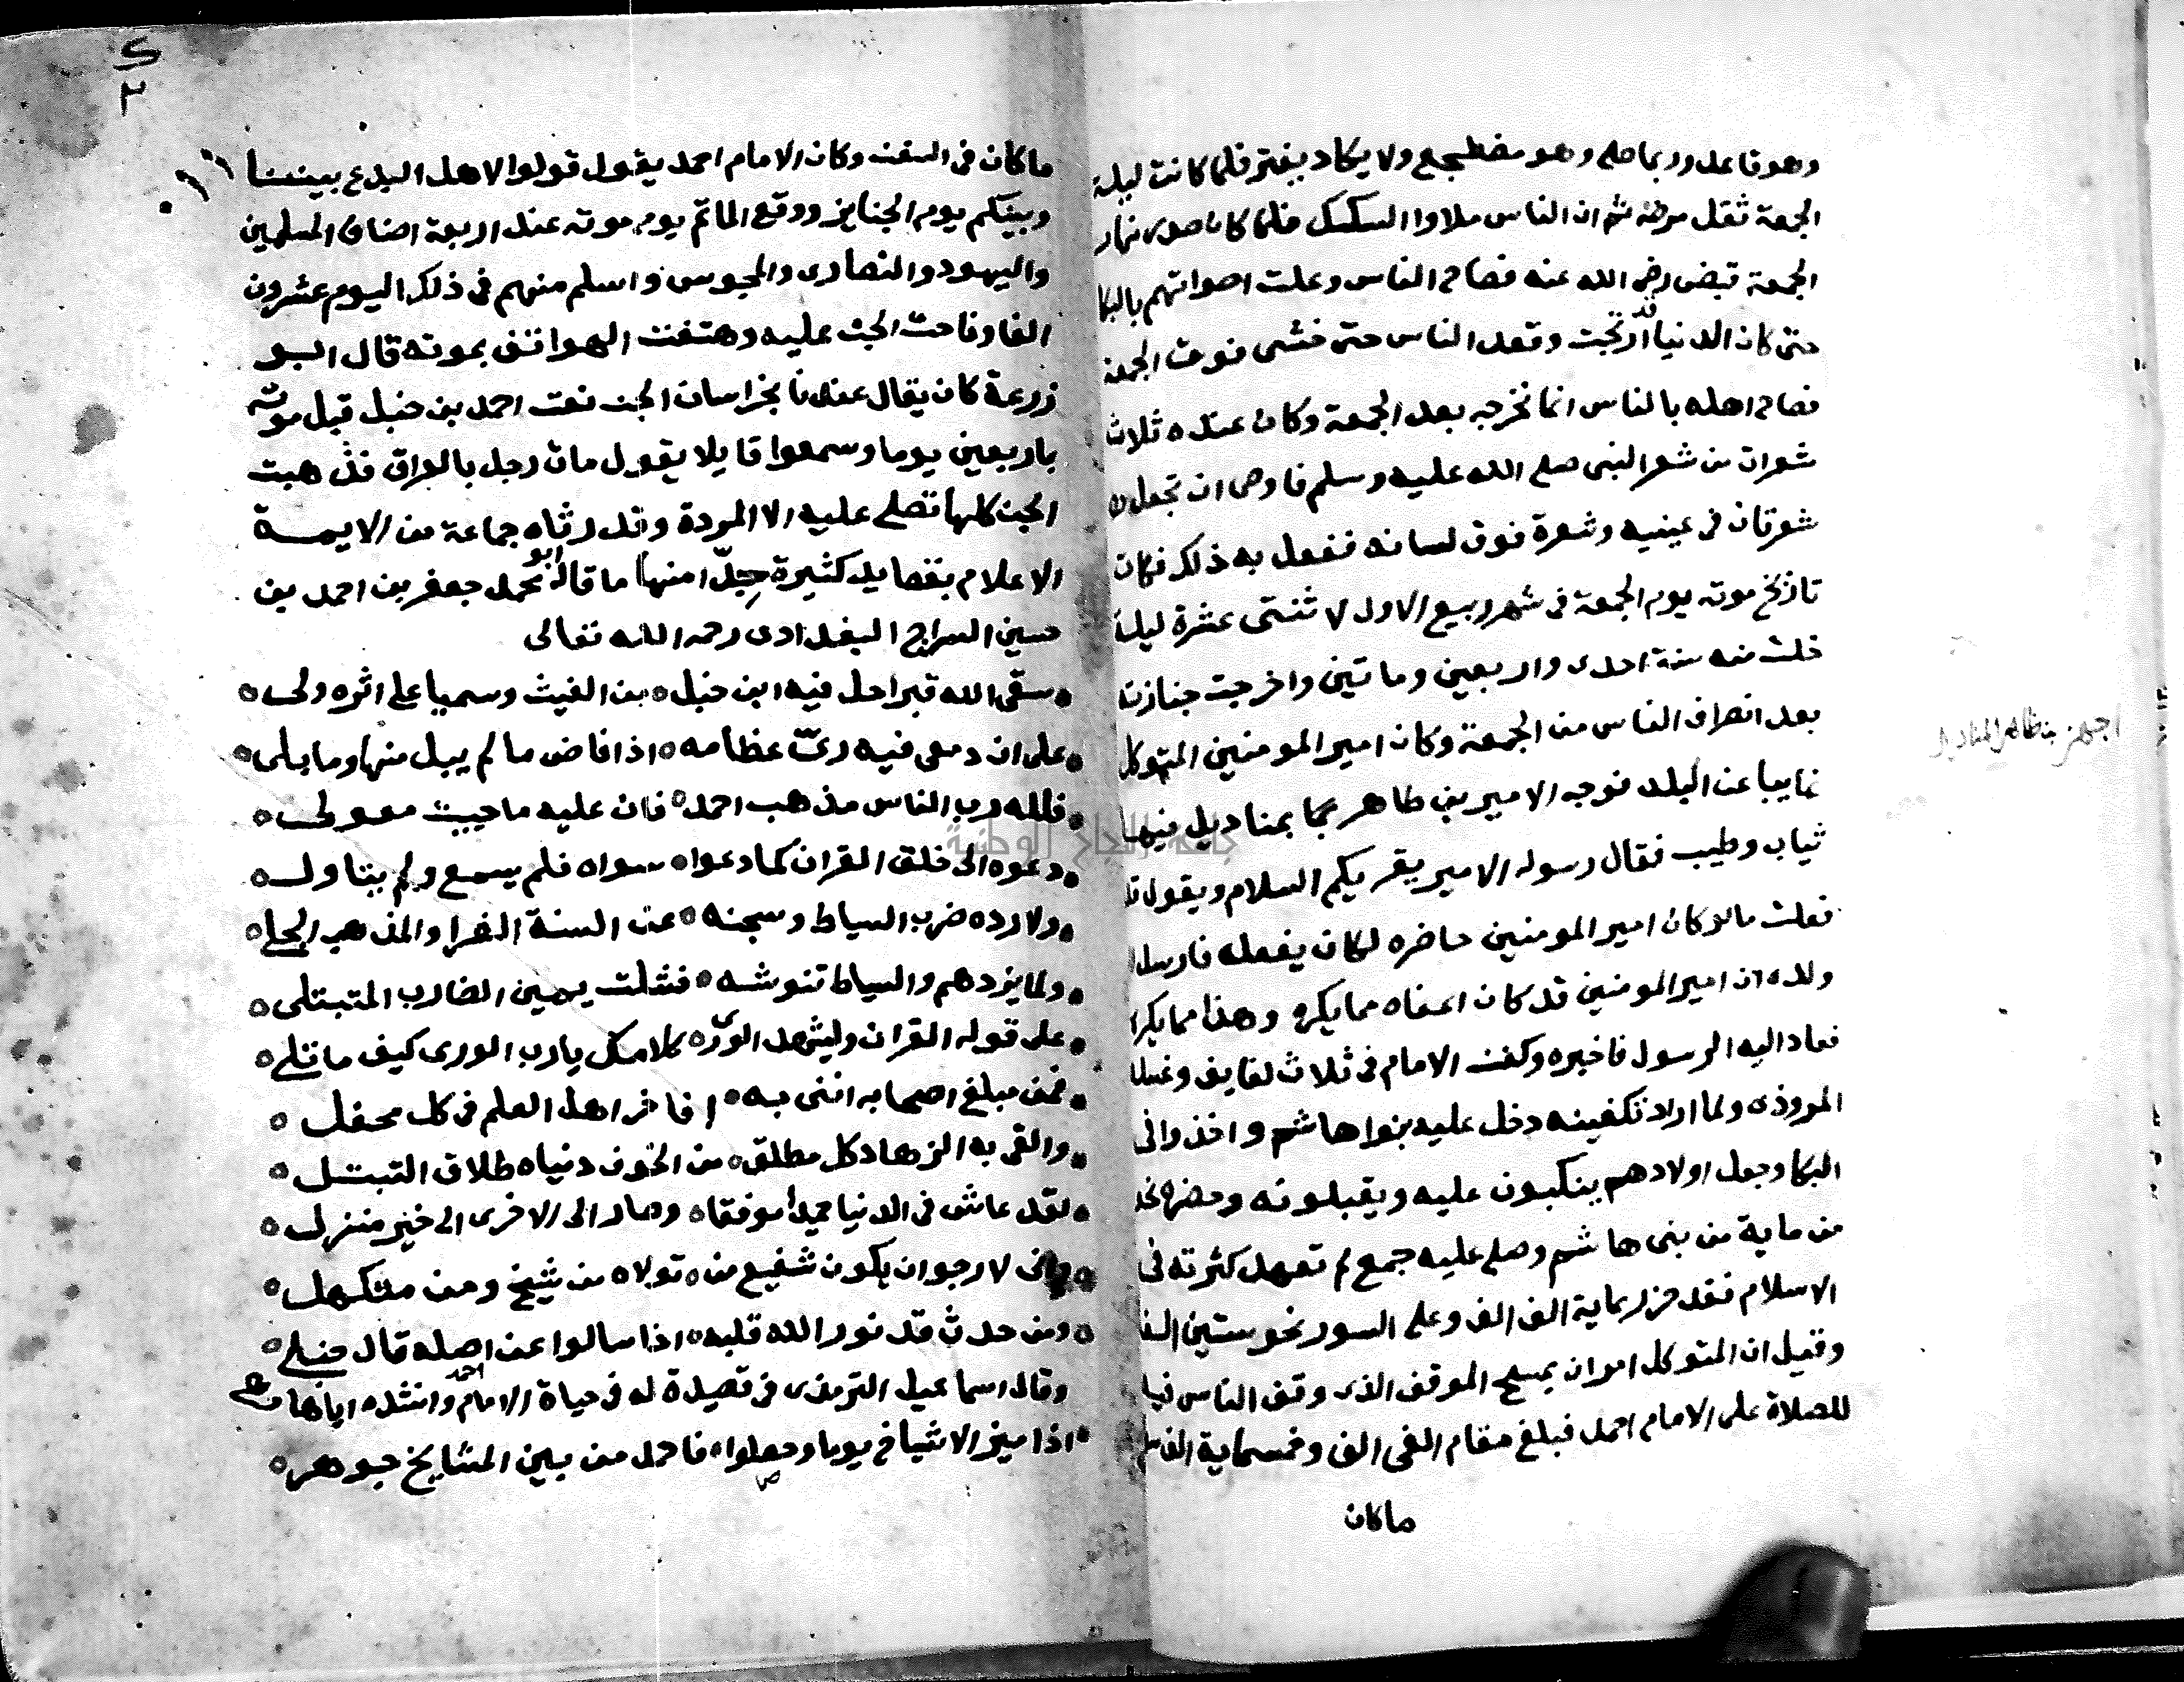 وهو قاعد وربما صلى وهو مضطجع ولا يكاد يفتر فلما كانت ليلة
الجمعة ثقل مرضه ثم ان الناس ملاوا السكك فلما كان صدر نهار
الجمعة قبض رضي الله عنه فصاح الناس وعلت اصواتهم بالبكا
حتى كان الدنيا قد ارتجت وقعد الناس حتى خشي فوت الجمعة
فصاح اهله بالناس انما نخرجه بعد الجمعة وكان عنده ثلاث
شعرات من شعر النبي صلى الله عليه وسلم فاوصى ان تجعل
شعرتان في عينيه وشعرة فوق لسانه ففعل به ذلك فكان
تاريخ موته يوم الجمعة في شهر ربيع الاول لاثنتي عشرة ليلة
خلت منه سنة احدى واربعين وماتين واخرجت جنازته
بعد انصراف الناس من الجمعة وكان امير المومنين المتوكل
غايبا عن البلد فوجه الامير بن طاهر بمناديل فيها
ثياب وطيب فقال رسوله الامير يقريكم السلام ويقول قد
فعلت ما لو كان امير المومنين حاضره لكان يفعله فارسل
ولده ان امير المومنين قد كان اعفاه مما يكره وهذا مما يكره
فعاد اليه الرسول فاخبره وكفن الامام في ثلاث لفايف وغسله
المروذي ولما اراد تكفينه دخل عليه بنوا هاشم واخذوا في
البكا وجعل اولادهم ينكبون عليه ويقبلونه وحضره نحو
من ماية من بني هاشم وصلى عليه جمع لم تعهد كثرته في
الاسلام فقد حزر بماية الف الف وعلى السور نحو ستين الفا
وقيل ان المتوكل امر ان يمسح الموقف الذي وقف الناس فيه
للصلاة على الامام احمد فبلغ مقام الفي الف وخمسماية الف
ماكان
اجهز بن طاهر المناديل
٢
ما كان في السفن وكان الامام احمد يقول قولوا لاهل البدع بيننا
وبينكم يوم الجنايز ووقع الماتم يوم موته عند اربعة اصناف المسلمين
واليهود والنصارى والمجوس واسلم منهم في ذلك اليوم عشرون
الفا وناحت الجن عليه وهتفت الهواتف بموته قال ابو
زرعة كان يقال عندنا بخراسان الجن نعت احمد بن حنبل قبل موته
باربعين يوما وسمعوا قايلا يقول مات رجل بالعراق فذهبت
الجن كلها تصلي عليه الا المردة وقد رثاه جماعة من الايمة
الاعلام بقصايد كثيرة جدّا منها ما قاله ابو محمد جعفر بن احمد بن
حسين السراج البغدادي رحمه الله تعالى
سقى الله قبرا حل فيه ابن حنبل من الغيث وسميا على اثره ولي
على ان دمعي فيه ريّ عظامه اذا فاض ما لم يبل منها وما بلي
فلله رب الناس مذهب احمد فان عليه ما حييت معولي
دعوه الى خلق القران كما دعوا سواه فلم يسمع ولم يتاول
ولا رده ضرب السياط وسجنه عن السنة الغرا والمذهب الجلي
ولما يزدهم والسياط تنوشه فشلت يمين الضارب المتبتلي
على قوله القران وليشهد الورى كلامك يارب الورى كيف ما تلي
فمن مبلغ اصحابه انني به افاخر اهل العلم في كل محفل
والقى به الزهاد كل مطلق من الخوف دنياه طلاق التبتل
لقد عاش في الدنيا حميدا موفقا وصار الى الاخرى الى خير منزل
واني لارجوا ان يكون شفيع من تولاه من شيخ ومن متكهل
ومن حدث قد نور الله قلبه اذا سالوا عن اصله قال حنبلي
وقال اسماعيل الترمذي في قصيدة له في حياة الامام احمد وانشده اياها
اذا ميز الاشياخ يوما وحصلوا فاحمد من بين المشايخ جوهر